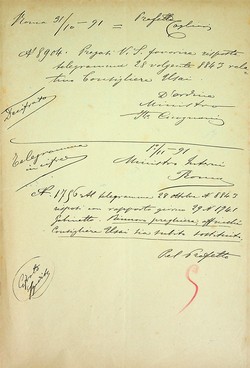 Roma 31/10 - 91 = Prefetto Cagliari
N. 8904. Pregasi V. S. favorire risposta
telegramma 28 volgente 8843 rela
tivo Consigliere Usai
D'ordine
Ministro
Decifrato
Telegramma
in cifra
1/11 - 91
Ministro Interni
Roma
N. 1756 Al telegramma 28 ottobre N. 8843
risposi con rapporto giorno 29 N. 1741
Gabinetto. Rinnovo preghiera affinché
Consigliere Usai sia subito sostituito
Pel Prefetto